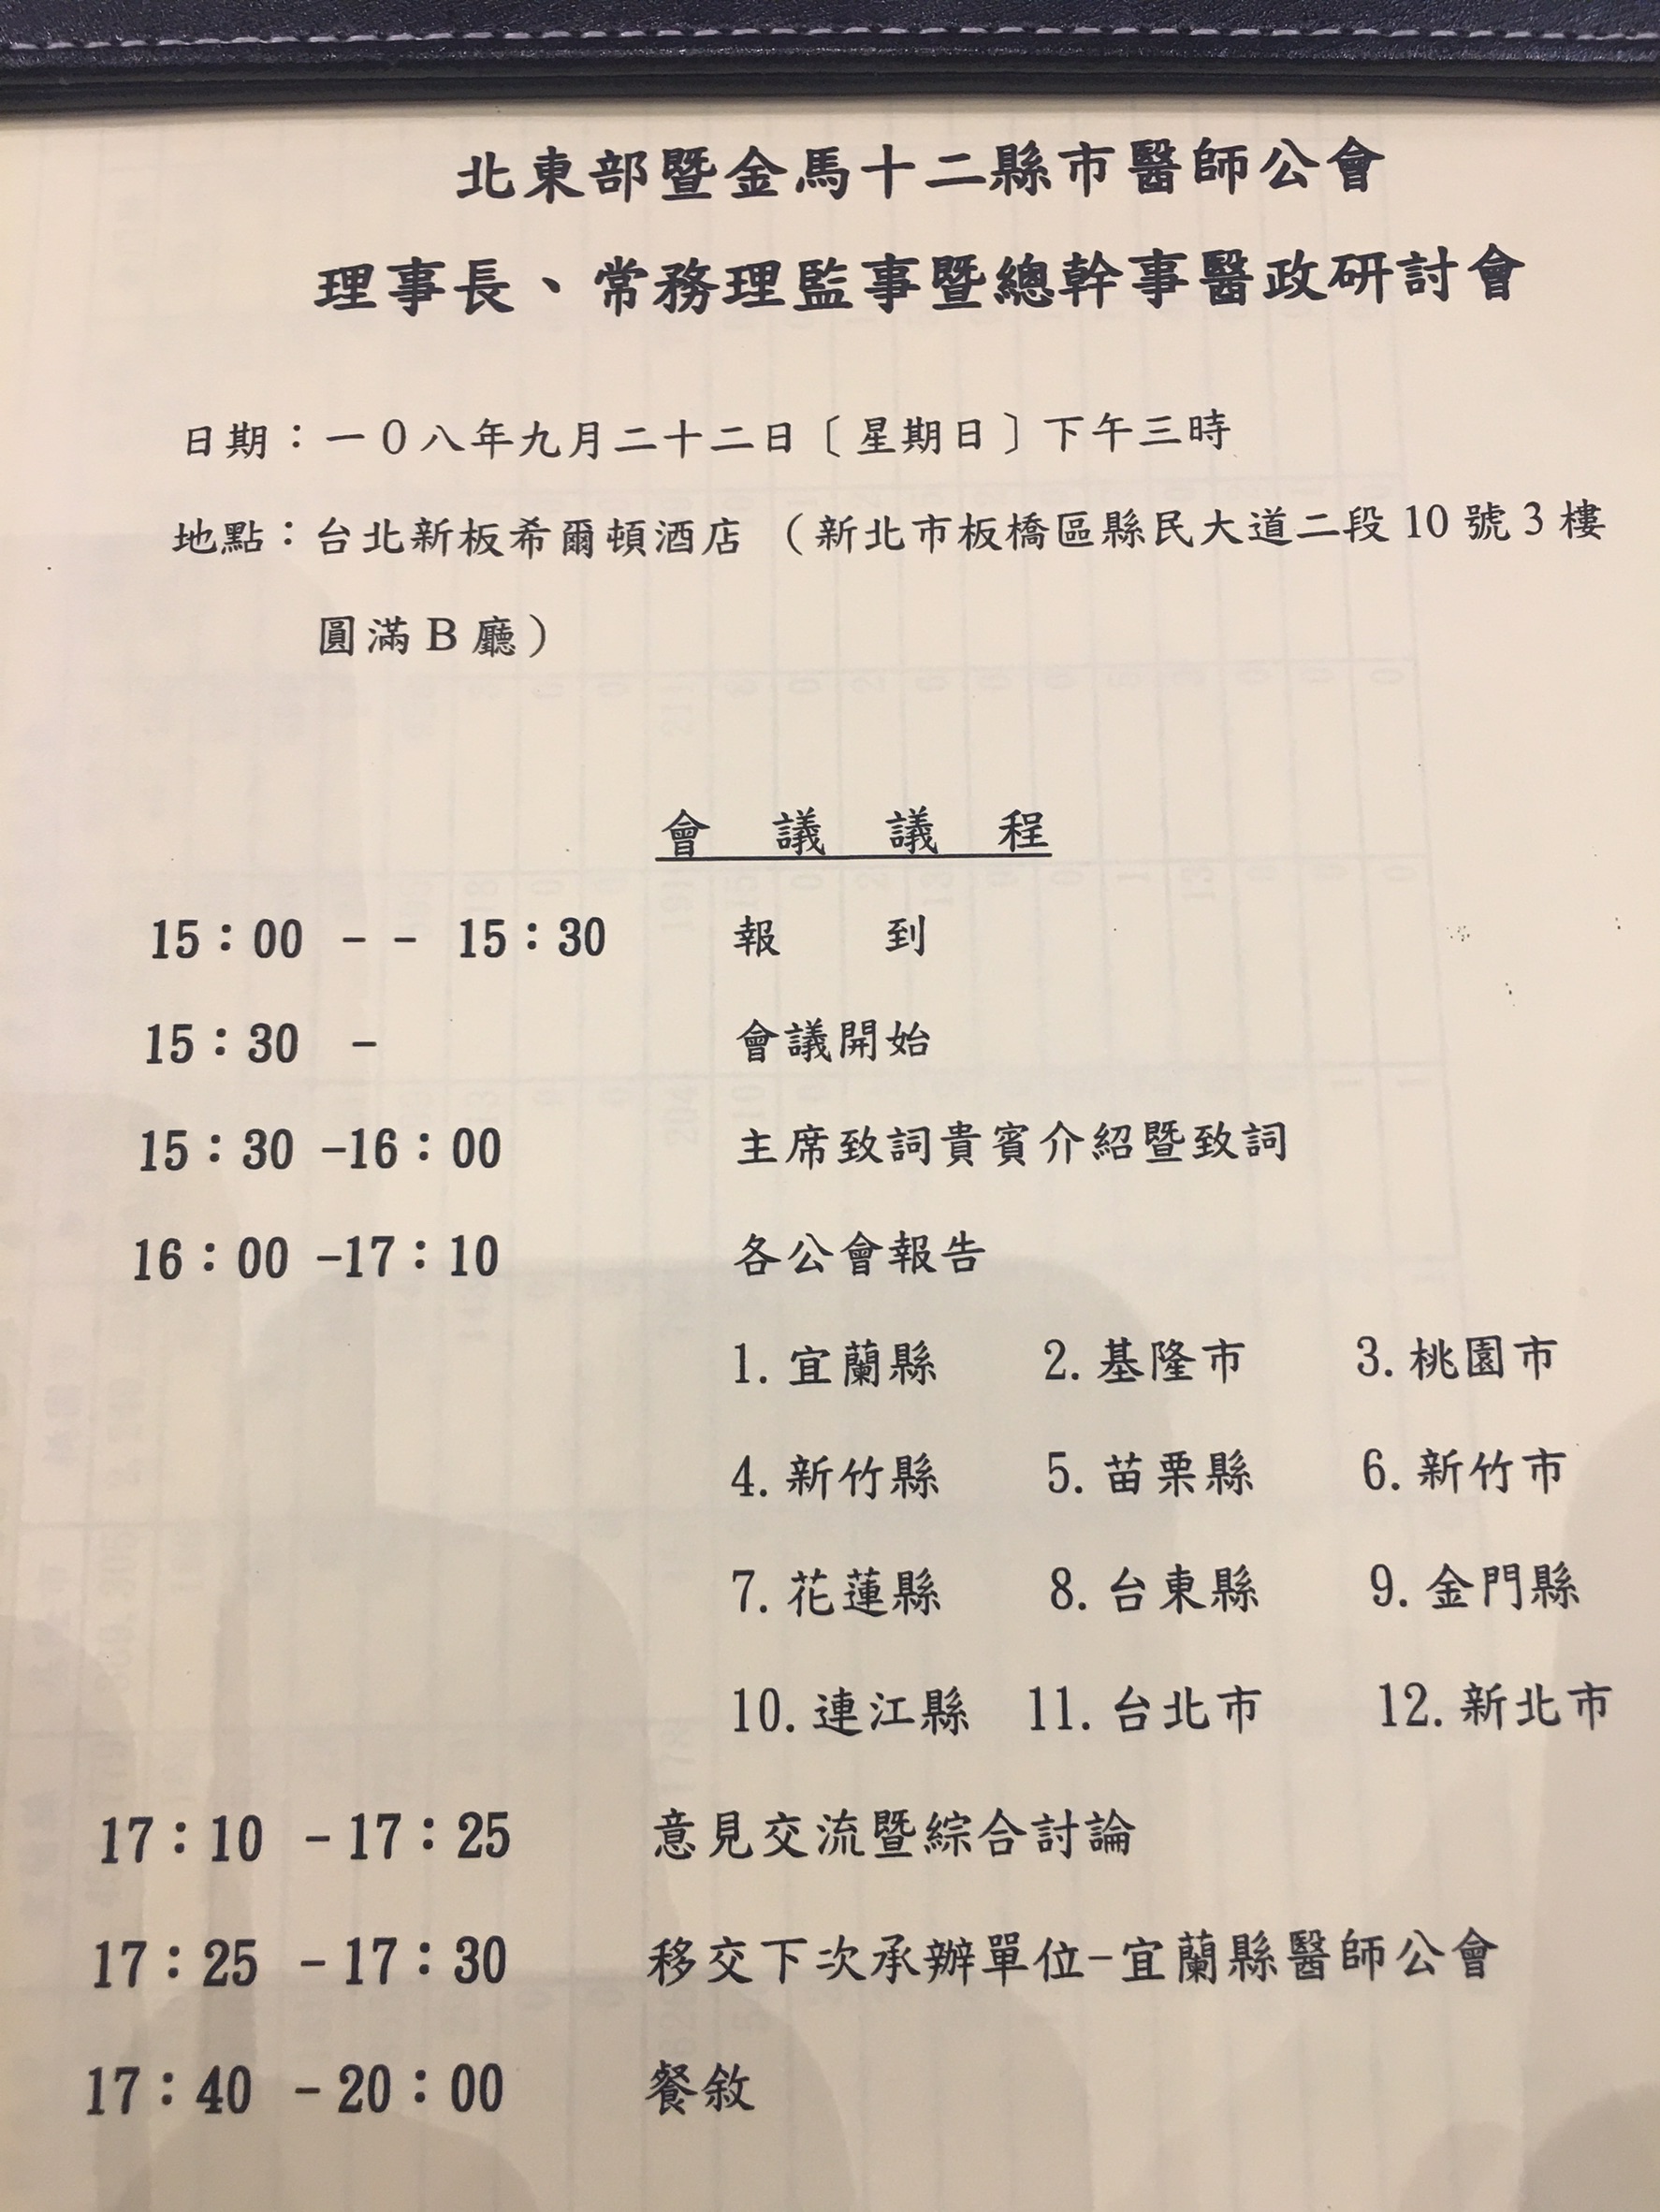 北東部暨金馬十二縣市醫師公會
理事長、常務理監事暨總幹事醫政研討會
日期：一０八年九月二十二日〔星期日〕下午三時
地點：台北新板希爾頓酒店 （新北市板橋區縣民大道二段10號3樓
圓滿B廳）
會 議 議 程
15：00 -- 15：30 報 到
15：30 - 會議開始
15：30 -16：00 主席致詞貴賓介紹暨致詞
16：00 -17：10 各公會報告
1. 宜蘭縣 2. 基隆市 3. 桃園市
4. 新竹縣 5. 苗栗縣 6. 新竹市
7. 花蓮縣 8. 台東縣 9. 金門縣
10. 連江縣 11. 台北市 12. 新北市
17：10 -17：25 意見交流暨綜合討論
17：25 -17：30 移交下次承辦單位-宜蘭縣醫師公會
17：40 -20：00 餐敘